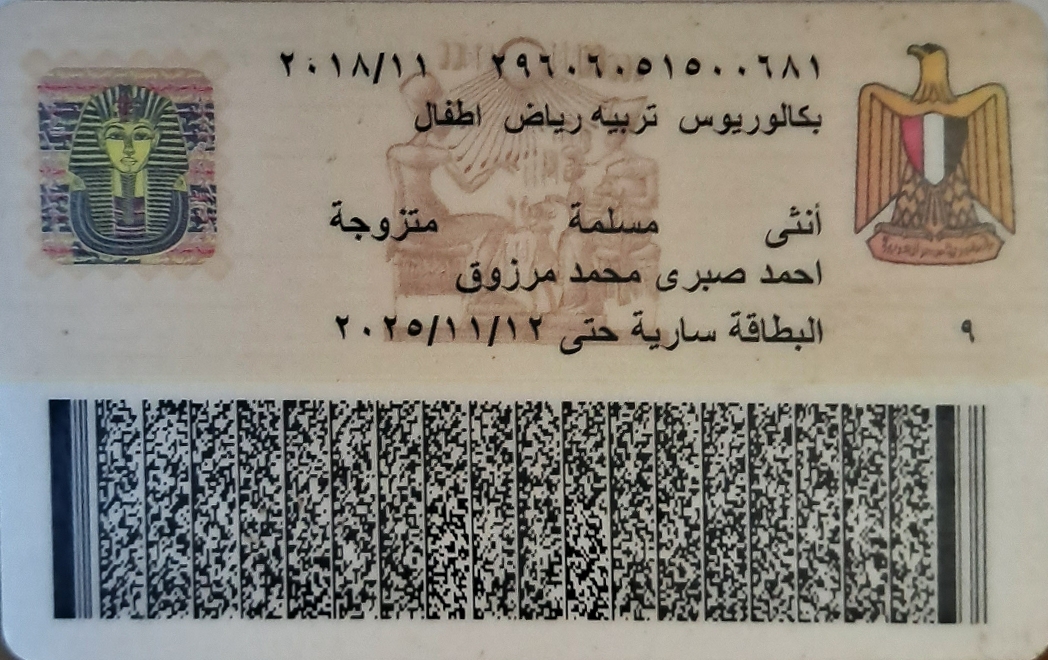 ٢٩٦٠٦٠٥١٥٠٠٦٨١ ٢٠١٨/١١
بكالوريوس تربيه رياض اطفال
أنثى مسلمة متزوجة
احمد صبرى محمد مرزوق
البطاقة سارية حتى ٢٠٢٥/١١/١٢
٩